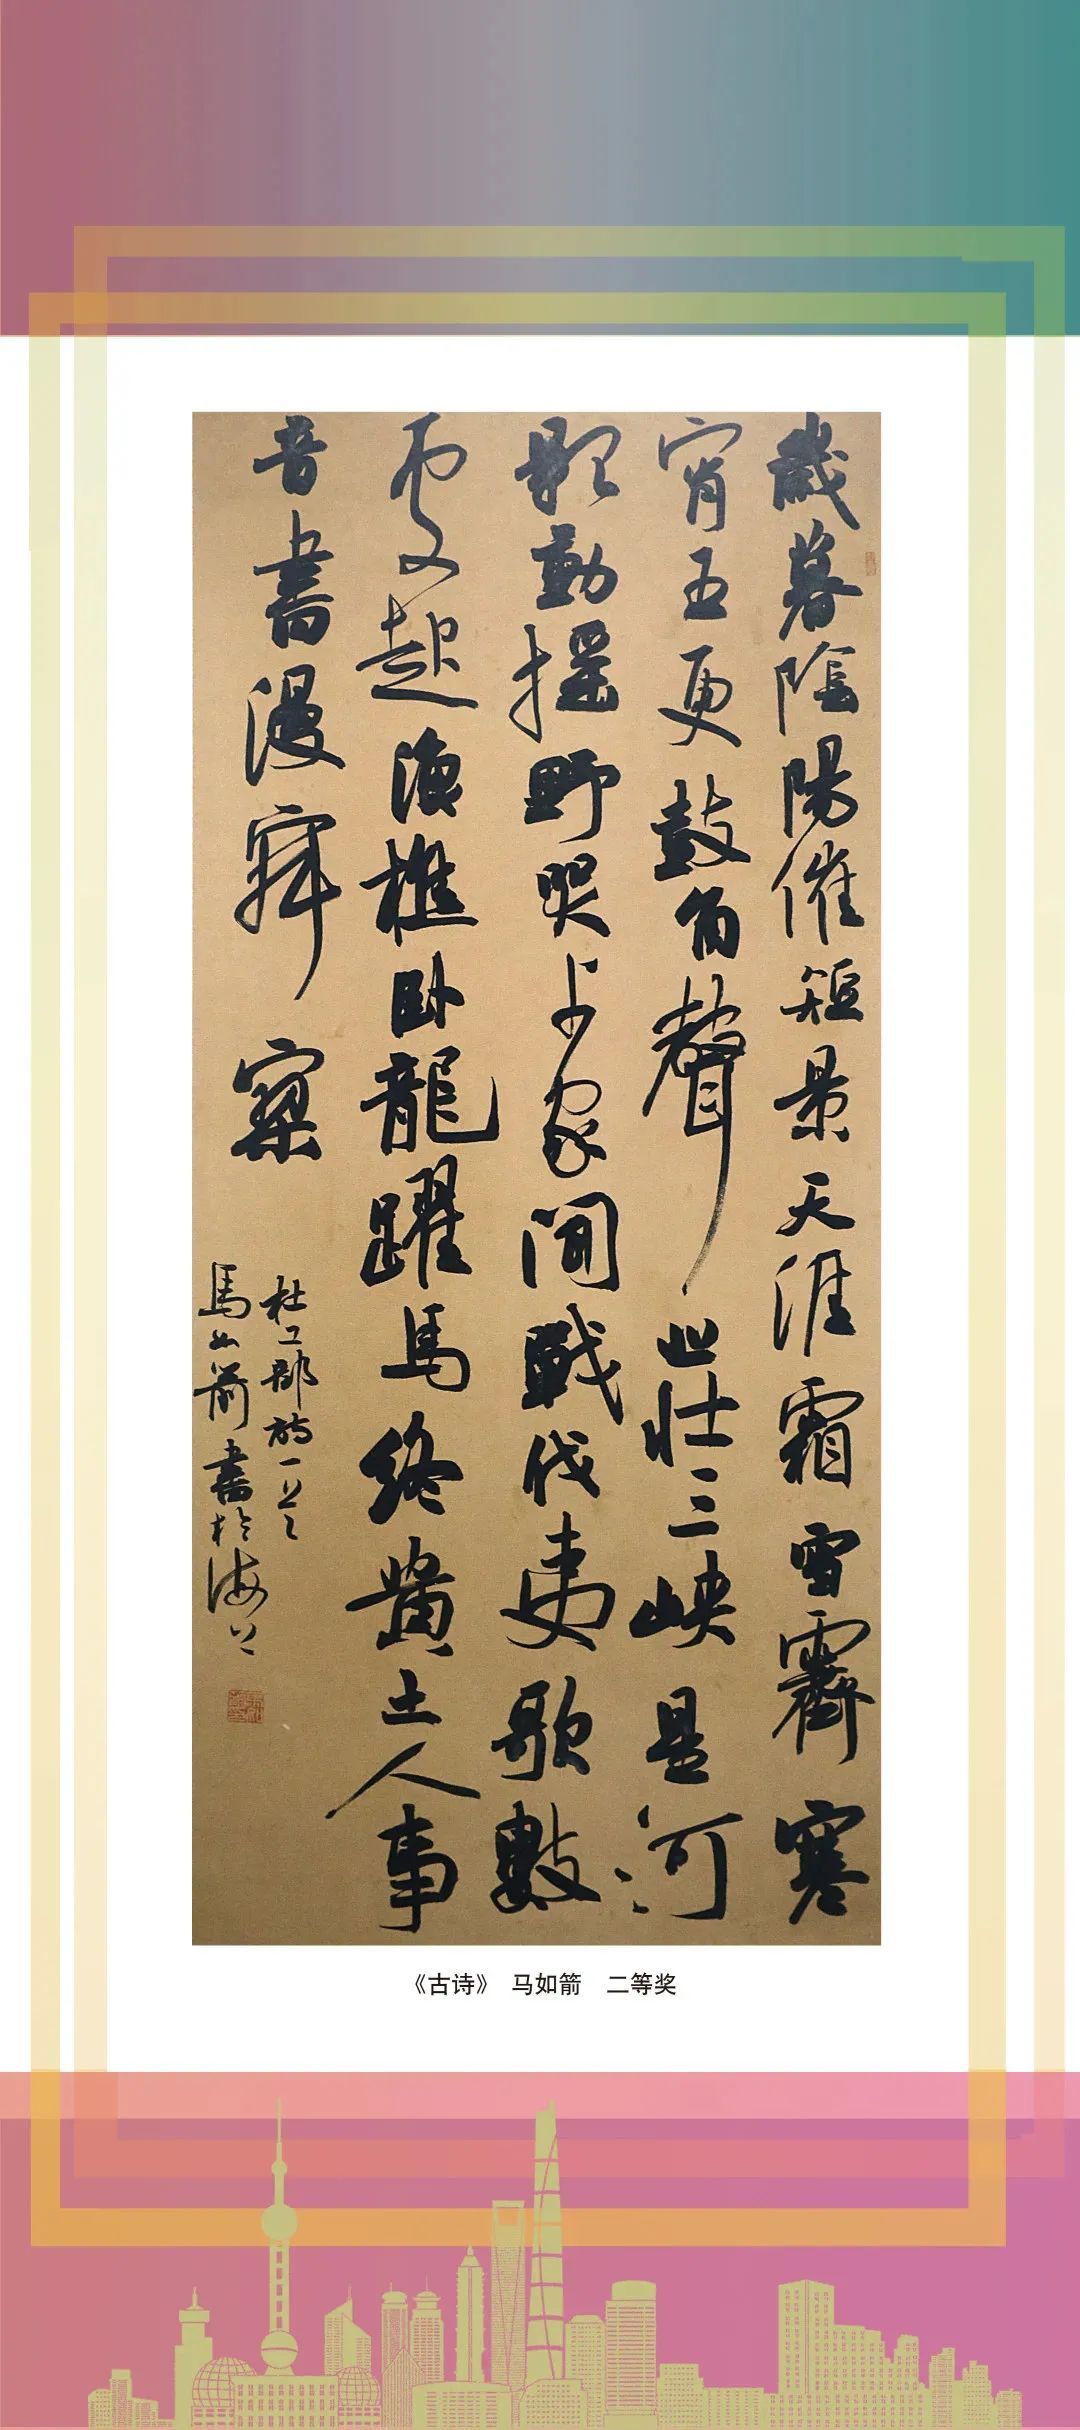 歲暮陰陽催短景天涯霜雪霽寒
宵五更鼓角聲悲壯三峽星河
影動搖野哭千家聞戰伐夷歌數
處起漁樵卧龍躍馬終黃土人事
音書漫寂寥
杜工部詩一首
馬如箭書於海上
《古诗》 马如箭 二等奖